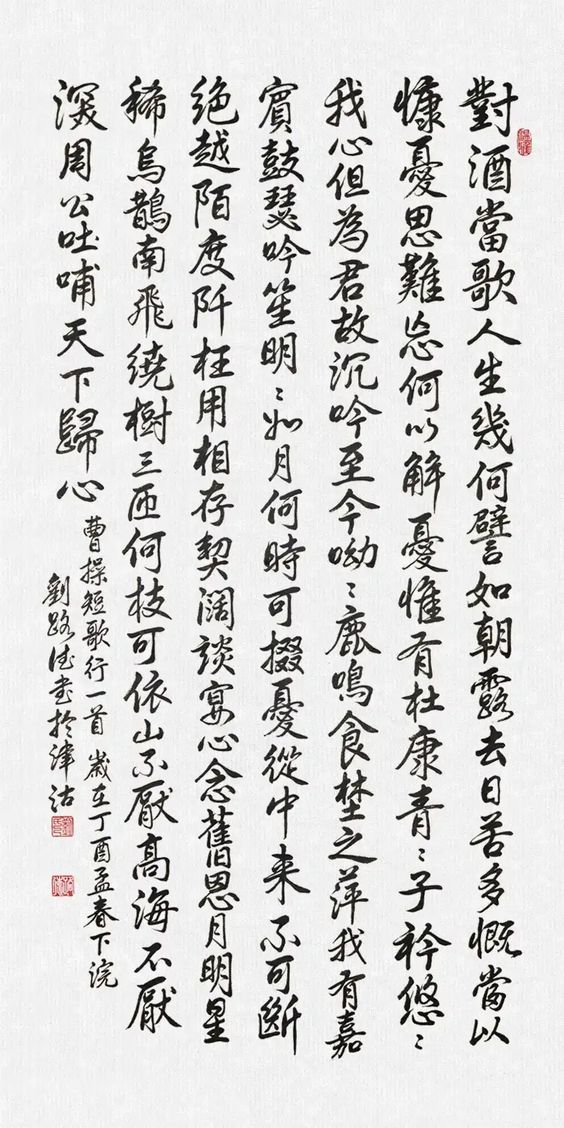 對酒當歌人生幾何譬如朝露去日苦多慨當以
慷憂思難忘何以解憂惟有杜康青〻子衿悠〻
我心但為君故沉吟至今呦〻鹿鳴食埜之萍我有嘉
賓鼓瑟吟笙明〻如月何時可掇憂從中来不可斷
絕越陌度阡枉用相存契闊談宴心念舊恩月明星
稀烏鵲南飛繞樹三匝何枝可依山不厭高海不厭
深周公吐哺天下歸心
曹操短歌行一首 歲在丁酉孟春下浣
劉路德書於津沽